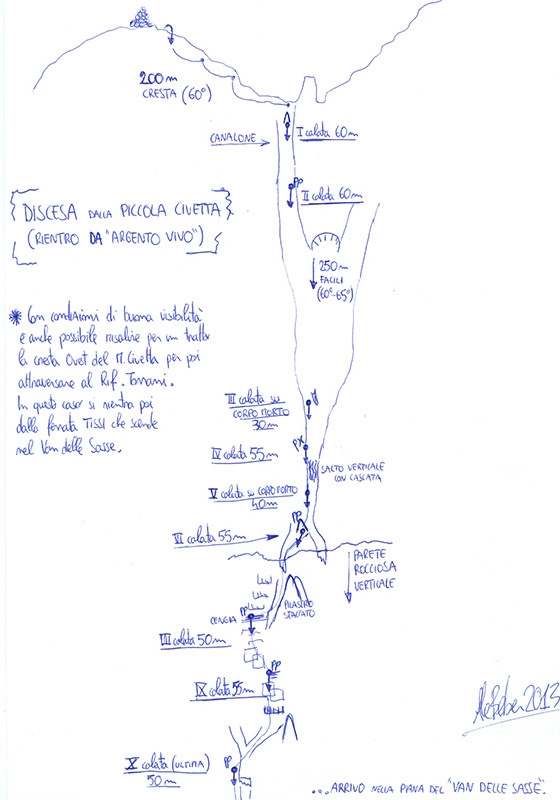 200m
CRESTA (60°)
CANALONE
I calata 60m
PP
II calata 60m
DISCESA DALLA PICCOLA CIVETTA
(RIENTRO DA "ARGENTO VIVO")
250m
FACILI
(60°-65°)
* Con condizioni di buona visibilità
è anche possibile risalire per un tratto
la cresta Ovet del M. Civetta per poi
attraversare al Rif. Torrani.
In questo caso si rientra poi
dalla ferrata TISSI che scende
nel Van delle Sasse.
III calata su
CORPO MORTO
30m
PX
IV calata 55m
SALTO VERTICALE
CON CASCATA
V calata su CORPO MORTO
40m
PP
VII calata 55m
PARETE
ROCCIOSA
VERTICALE
PILASTRO
STACCATO
CENGIA
PP
VIII calata 50m
PP
IX calata 55m
AleBeber 2013
PP
X calata (ULTIMA)
50m
...ARRIVO NELLA PIANA DEL "VAN DELLE SASSE".